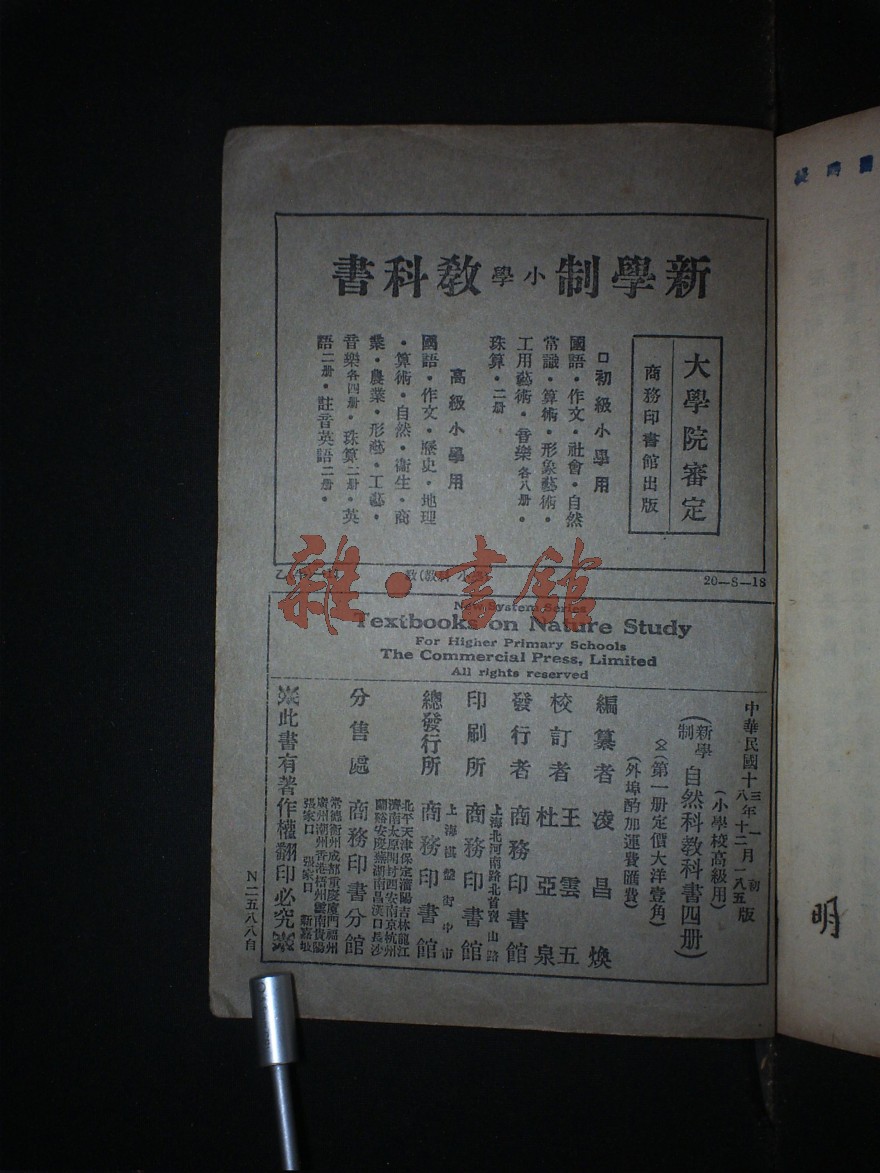 新學制小學教科書
大學院審定
商務印書館出版
□初級小學用
國語・作文・社會・自然
常識・算術・形象藝術・
工用藝術・音樂各八册・
珠算・二册
高級小學用
國語・作文・歷史・地理
・算術・自然・衛生・商
業・農業・形藝・工藝・
音樂各四册・珠算二册・英
語二册・註音英語二册・
20—8—18
雜・書館
New System Series
Textbooks on Nature Study
For Higher Primary Schools
The Commercial Press, Limited
All rights reserved
中華民國十三年一月初版
八年十二月一八五版
(小學校高級用)
(新學制)自然科教科書四册)
(第一册定價大洋壹角)
(外埠酌加運費匯費)
編纂者 凌昌煥
校訂者 王雲五
杜亞泉
發行者 商務印書館
上海北河南路北首寶山路
印刷所 商務印書館
上海棋盤街中市
總發行所 商務印書館
北平天津保定瀋陽吉林龍江
濟南太原開封西安南京杭州
蘭谿安慶蕪湖南昌漢口長沙
分售處 商務印書分館
常德衡州成都重慶廈門福州
廣州潮州香港梧州雲南貴陽
張家口 新嘉坡
此書有著作權翻印必究
N二五八八自
明